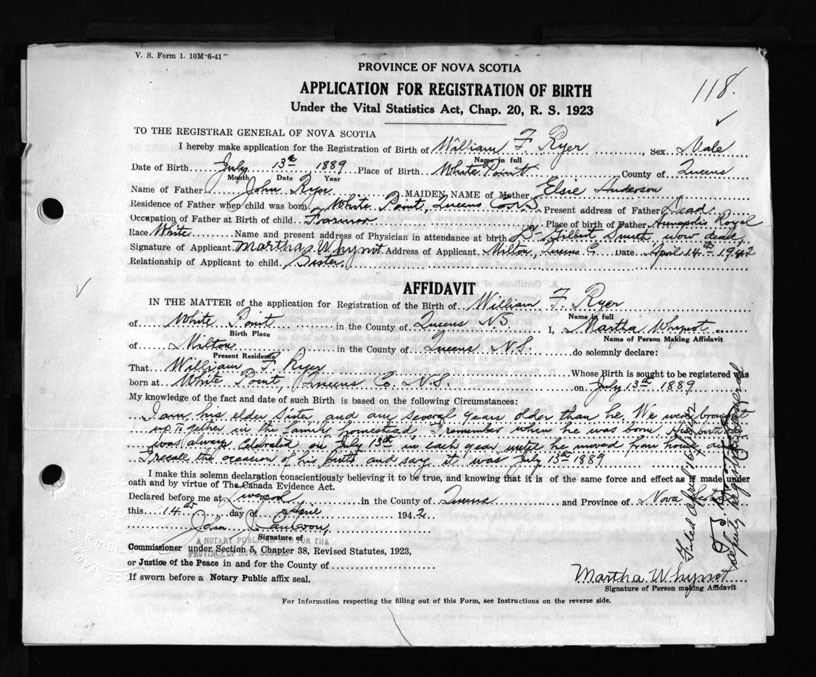 V. S. Form 1. 10M-6-41
PROVINCE OF NOVA SCOTIA
APPLICATION FOR REGISTRATION OF BIRTH
Under the Vital Statistics Act, Chap. 20, R. S. 1923
118.
TO THE REGISTRAR GENERAL OF NOVA SCOTIA
I hereby make application for the Registration of Birth of William F. Ryer Sex Male
Name in full
Date of Birth July 13th 1889 Place of Birth White Point County of Queens
Month Date Year
Name of Father John Ryer MAIDEN NAME of Mother Elsie Anderson
Residence of Father when child was born White Point, Queens Co. N.S. Present address of Father Dead
Occupation of Father at Birth of child Place of birth of Father Annapolis Royal
Race White Name and present address of Physician in attendance at birth Dr Gilbert Smith now dead
Signature of Applicant Martha Whynot Address of Applicant Milton, Queens C. Date April 14th 1942
Relationship of Applicant to child Sister
AFFIDAVIT
IN THE MATTER of the application for Registration of the Birth of William F. Ryer
Name in full
of White Point in the County of Queens NS I, Martha Whynot
Birth Place Name of Person Making Affidavit
of Milton in the County of Queens N.S. do solemnly declare:
Present Residence
That William F. Ryer Whose Birth is sought to be registered was
born at White Point, Queens C. N.S. on July 13th 1889
My knowledge of the fact and date of such Birth is based on the following Circumstances:
I am his elder sister and am several years older than he. We were brought
up together in the family homestead. I remember when he was born. His birthday
was always celebrated on July 13th in each year until he moved from home and
I recall the occasion of his birth and say it was July 13th 1889
I make this solemn declaration conscientiously believing it to be true, and knowing that it is of the same force and effect as if made under
oath and by virtue of The Canada Evidence Act.
Declared before me at Liverpool in the County of Queens and Province of Nova Scotia
this 14th day of April 1942
Signature of
A NOTARY PUBLIC IN AND FOR THE
PROVINCE OF NOVA SCOTIA
Commissioner under Section 5, Chapter 38, Revised Statutes, 1923,
or Justice of the Peace in and for the County of
If sworn before a Notary Public affix seal.
Martha Whynot
Signature of Person making Affidavit
For Information respecting the filling out of this Form, see Instructions on the reverse side.
Filed April 16/1942
Deputy Registrar General